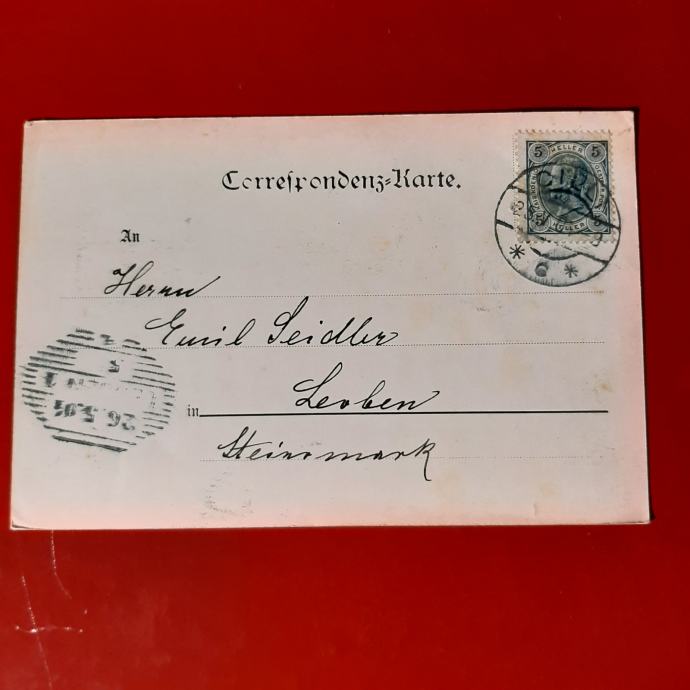 Correspondenz=Karte.
5 HELLER 5
5 HELLER 5
6
An
Herrn
Emil Seidler
in Leoben
Steiermark
26.5.01